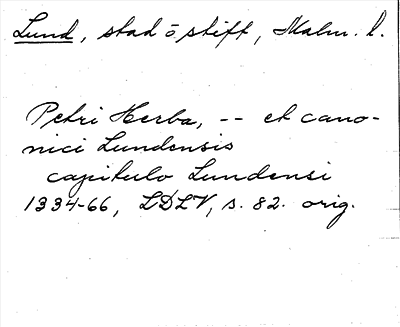 Lund, stad o stift, Malm. l.
Petri Herba, -- et cano-
nici Lundensis
capitulo Lundensi
1334-66, LDLV, s. 82. orig.